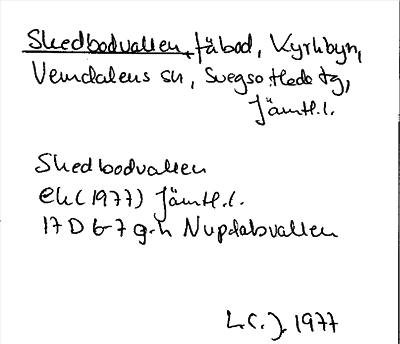 Skedbodvallen, fäbod, Kyrkbyn,
Vemdalens sn, Svegs o. Hede tg,
Jämtl.l.
Skedbodvallen
ek (1977) Jämtl.l.
17 D 6-7 g-h Nupdalsvallen
L.C.J. 1977